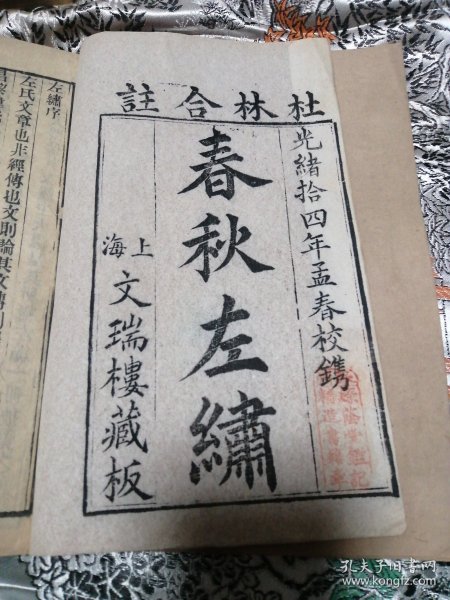 杜林合註
光緒拾四年孟春校鐫
春秋左繡
上海
文瑞樓藏板
左繡序
左氏文章也非經傳也文則論其文傳則
孔夫子旧书网
www.kongfz.com